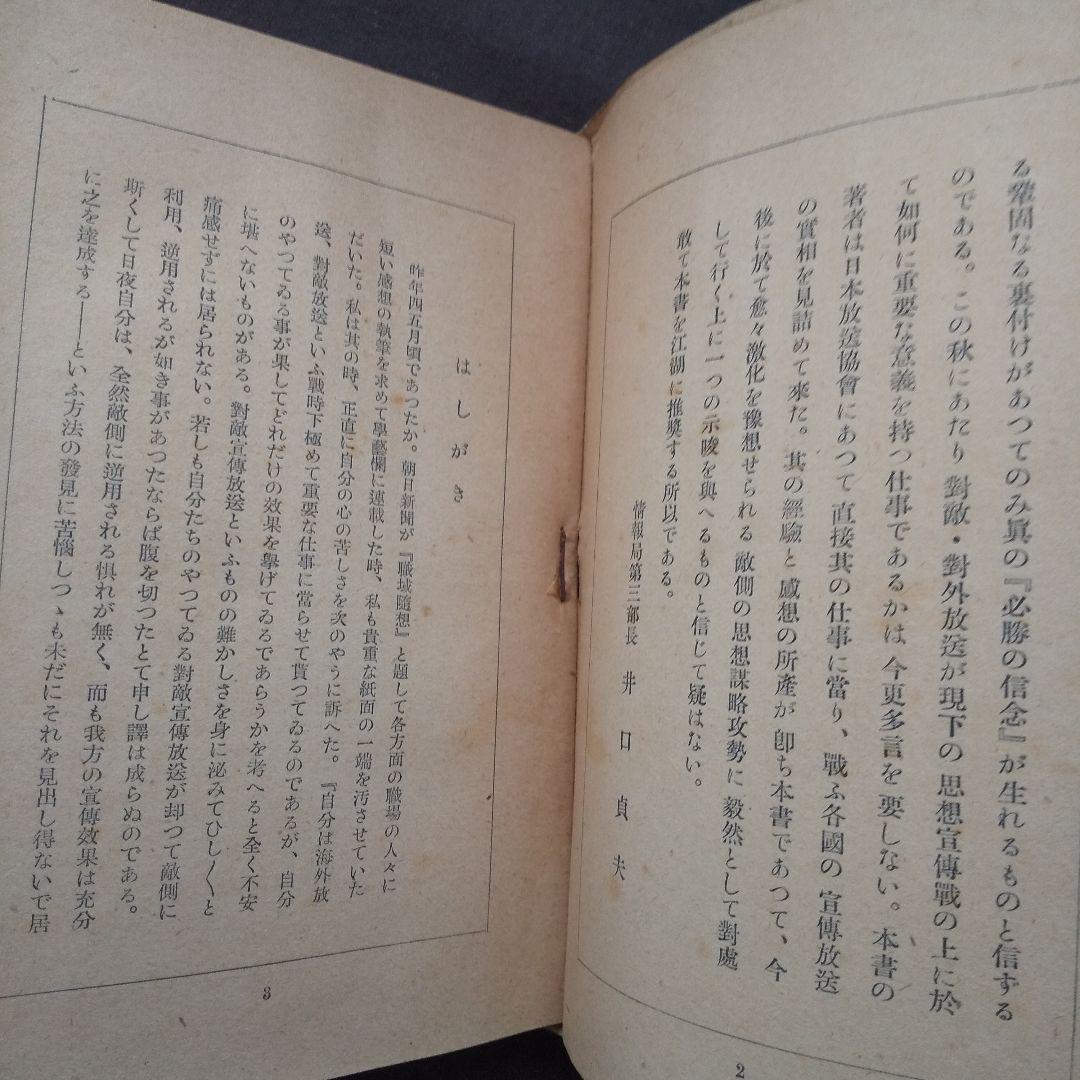 る鞏固なる裏付けがあつてのみ眞の『必勝の信念』が生れるものと信ずる
のである。この秋にあたり對敵・對外放送が現下の思想宣傳戰の上に於
て如何に重要な意義を持つ仕事であるかは今更多言を要しない。本書の
著者は日本放送協會にあつて直接其の仕事に當り、戰ふ各國の宣傳放送
の實相を見詰めて來た。其の經驗と感想の所產が卽ち本書であつて、今
後に於て愈々激化を豫想せられる敵側の思想謀略攻勢に毅然として對處
して行く上に一つの示唆を與へるものと信じて疑はない。
敢て本書を江湖に推奬する所以である。
情報局第三部長 井口貞夫
2
はしがき
昨年四五月頃であつたか。朝日新聞が『職域隨想』と題して各方面の職場の人々に
短い感想の執筆を求めて學藝欄に連載した時、私も貴重な紙面の一端を汚させていた
だいた。私は其の時、正直に自分の心の苦しさを次のやうに訴へた。『自分は海外放
送、對敵放送といふ戰時下極めて重要な仕事に當らせて貰つてゐるのであるが、自分
のやつてゐる事が果してどれだけの效果を擧げてゐるであらうかを考へると全く不安
に堪へないものがある。對敵宣傳放送といふものの難かしさを身に泌みてひし〱と
痛感せずには居られない。若しも自分たちのやつてゐる對敵宣傳放送が却つて敵側に
利用、逆用されるが如き事があつたならば腹を切つたとて申し譯は成らぬのである。
斯くして日夜自分は、全然敵側に逆用される惧れが無く、而も我方の宣傳效果は充分
に之を達成する――といふ方法の發見に苦惱しつゝも未だにそれを見出し得ないで居
3